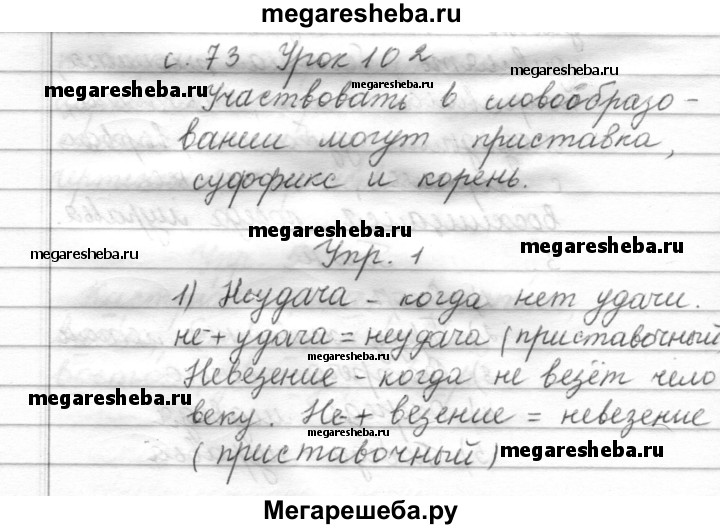 megaresheba.ru
с. 73 Урок 102
megaresheba.ru
megaresheba.ru
Участвовать в словообразо-
вании могут приставка,
суффикс и корень.
megaresheba.ru
megaresheba.ru
megaresheba.ru
Упр. 1
1) Неудача - когда нет удачи.
не- + удача = неудача (приставочный
megaresheba.ru
Невезение - когда не везёт чело
megaresheba.ru
megaresheba.ru
веку. Не- + везение = невезение
megaresheba.ru
(приставочный)
megaresheba.ru
Мегарешеба.ру